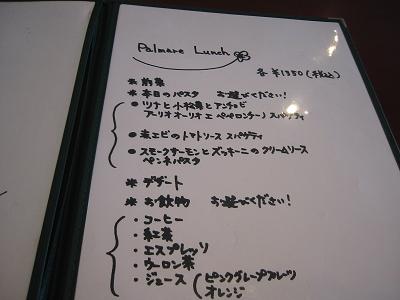 Palmare Lunch
各 ¥1350 (税込)
* 前菜
* 本日のパスタ お選びください!
● ツナと小松菜とアンチョビ
アーリオ オーリオ エ ペペロンチーノ スパゲティ
● 赤エビのトマトソース スパゲティ
● スモークサーモンとズッキーニのクリームソース
ペンネパスタ
* デザート
* お飲物 お選びください!
・コーヒー
・紅茶
・エスプレッソ
・ウーロン茶
・ジュース (ピンクグレープフルーツ
オレンジ